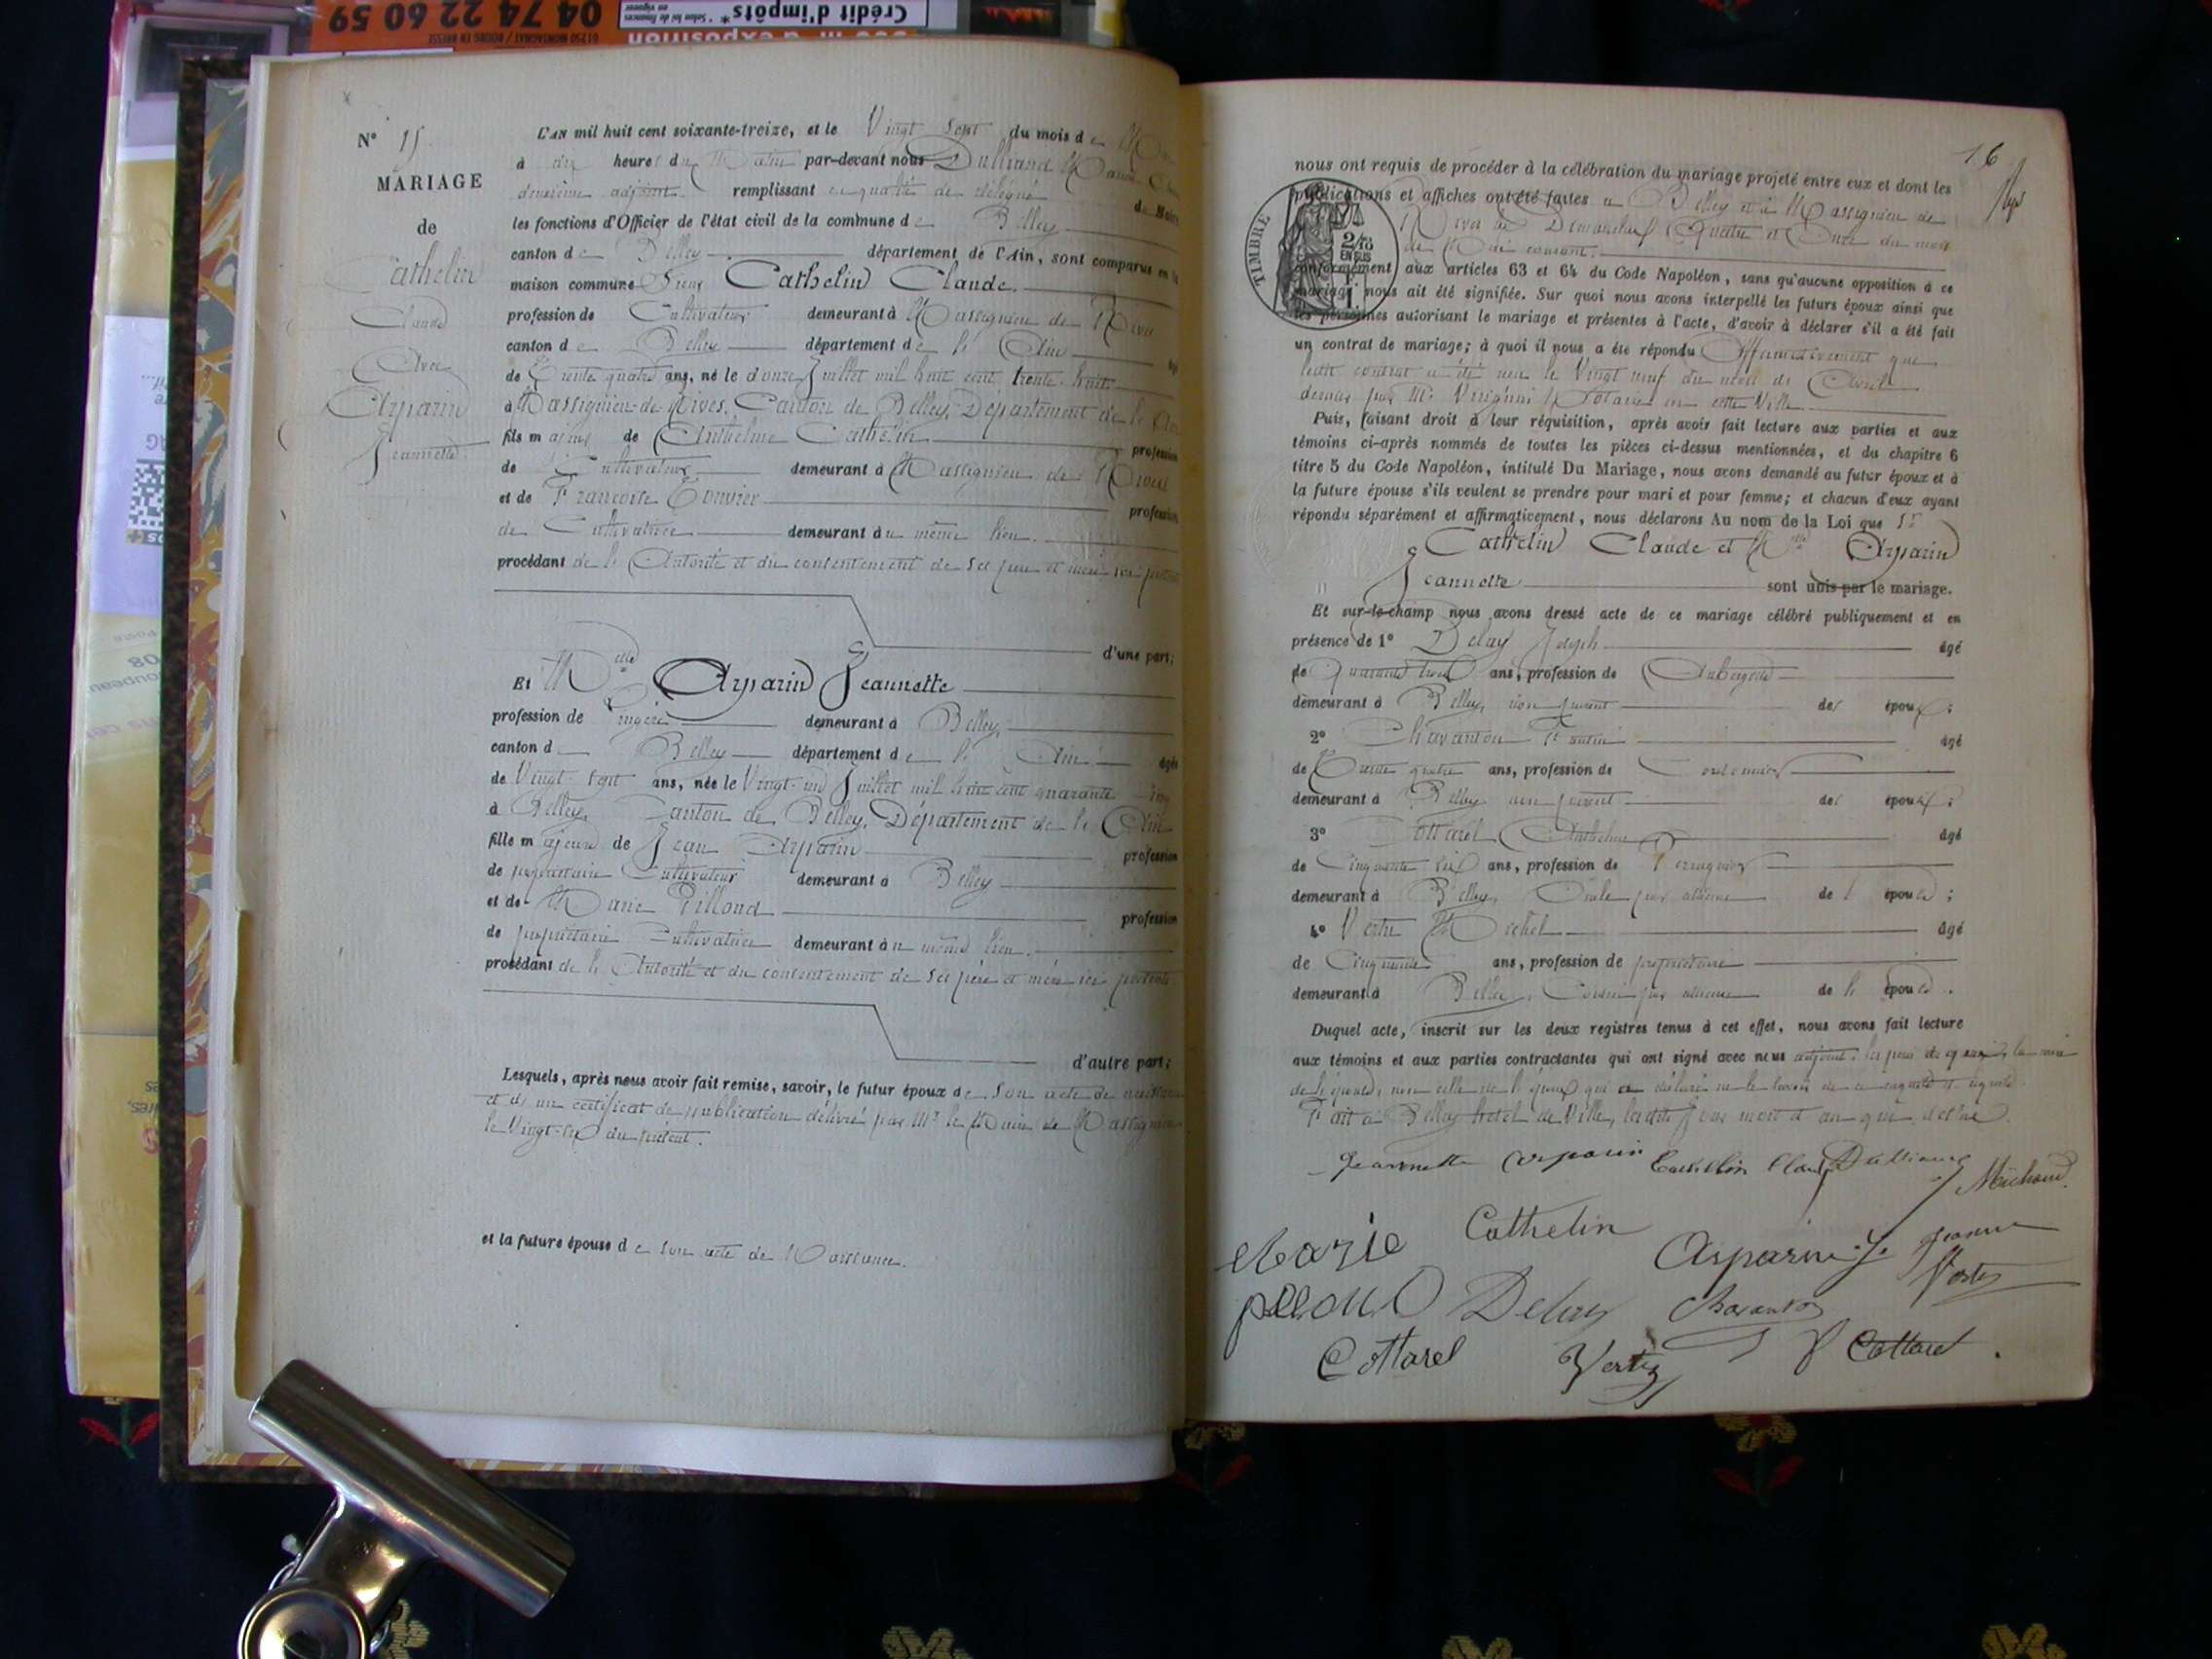 04 74 22 60 59
01250 MONTAGNAT / BOURG EN BRESSE
Crédit d'impôts*
* Selon loi de finances en vigueur
N° 15
MARIAGE
de
Cathelin
Claude
Avec
Arparin
Jeannette
L'AN mil huit cent soixante-treize, et le Vingt Sept du mois de
à dix heures du Matin par-devant nous Dulliand
deuxième adjoint remplissant en qualité de délégué
les fonctions d'Officier de l'état civil de la commune de Belley
canton de Belley département de l'Ain, sont comparus en la
maison commune Sieur Cathelin Claude.
profession de Cultivateur demeurant à Massignieu de Rives
canton de Belley département de l'Ain
de Trente quatre ans, né le douze Juillet mil huit cent trente-huit
à Massignieu-de-Rives, Canton de Belley, Département de l'Ain
fils majeur de Anthelme Cathelin profession
de Cultivateur demeurant à Massignieu de Rives
et de Françoise profession
de Cultivatrice demeurant au même lieu.
procédant de l'Autorité et du consentement de ses père et mère ici présents
d'une part;
Et Melle Arparin Jeannette
profession de Lingère demeurant à Belley,
canton de Belley département de l'Ain âgée
de Vingt Sept ans, née le Vingt-un Juillet mil huit cent quarante cinq
à Belley, Canton de Belley, Département de l'Ain
fille majeure de Jean Arparin profession
de propriétaire Cultivateur demeurant à Belley
et de Marie Pilloud profession
de propriétaire Cultivatrice demeurant au même lieu.
procédant de l'Autorité et du consentement de ses père et mère ici présents
d'autre part;
Lesquels, après nous avoir fait remise, savoir, le futur époux de son acte de naissance
et d'un certificat de publication délivré par Mr le Maire de Massignieu
le Vingt-six du présent.
et la future épouse de son acte de Naissance.
16
nous ont requis de procéder à la célébration du mariage projeté entre eux et dont les
publications et affiches ont été faites à Belley et à Massignieu de
Rives les Dimanches Quatre et Onze du mois
de Mai courant.
TIMBRE
2/10
EN SUS
conformément aux articles 63 et 64 du Code Napoléon, sans qu'aucune opposition à ce
mariage nous ait été signifiée. Sur quoi nous avons interpellé les futurs époux ainsi que
les personnes autorisant le mariage et présentes à l'acte, d'avoir à déclarer s'il a été fait
un contrat de mariage; à quoi il nous a été répondu Affirmativement que
ledit contrat a été reçu le Vingt neuf du mois de Avril
dernier par Me Notaire en cette Ville
Puis, faisant droit à leur réquisition, après avoir fait lecture aux parties et aux
témoins ci-après nommés de toutes les pièces ci-dessus mentionnées, et du chapitre 6
titre 5 du Code Napoléon, intitulé Du Mariage, nous avons demandé au futur époux et à
la future épouse s'ils veulent se prendre pour mari et pour femme; et chacun d'eux ayant
répondu séparément et affirmativement, nous déclarons Au nom de la Loi que Sr
Cathelin Claude et Melle Arparin
Jeannette sont unis par le mariage.
Et sur-le-champ nous avons dressé acte de ce mariage célébré publiquement et en
présence de 1° Delay Joseph âgé
de Quarante trois ans, profession de Aubergiste
demeurant à Belley, non parent des époux;
2° Chavanton âgé
de Trente quatre ans, profession de Cordonnier
demeurant à Belley non parent des époux;
3° Cottarel Anthelme âgé
de Cinquante six ans, profession de Perruquier
demeurant à Belley, Oncle par alliance de l'épouse;
4° Vertu Michel âgé
de Cinquante ans, profession de propriétaire
demeurant à Belley, Cousin par alliance de l'épouse.
Duquel acte, inscrit sur les deux registres tenus à cet effet, nous avons fait lecture
aux témoins et aux parties contractantes qui ont signé avec nous adjoint, les père de
de l'épouse, non celle de l'époux qui a déclaré ne le savoir de ce enquise et requise.
Fait à Belley hotel de Ville, lesdits Jour mois et an que dessus.
Jeannette Arparin Cathelin Claude Dulliand
Michaud
Marie Cathelin Arparin J. Jeanne
pilloud Delay Chavanton
Cottarel F Cottarel